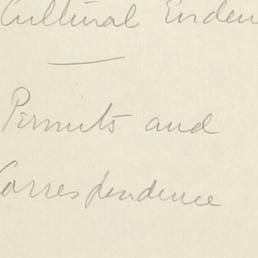 Cultural Eviden
Permits and
Correspondence